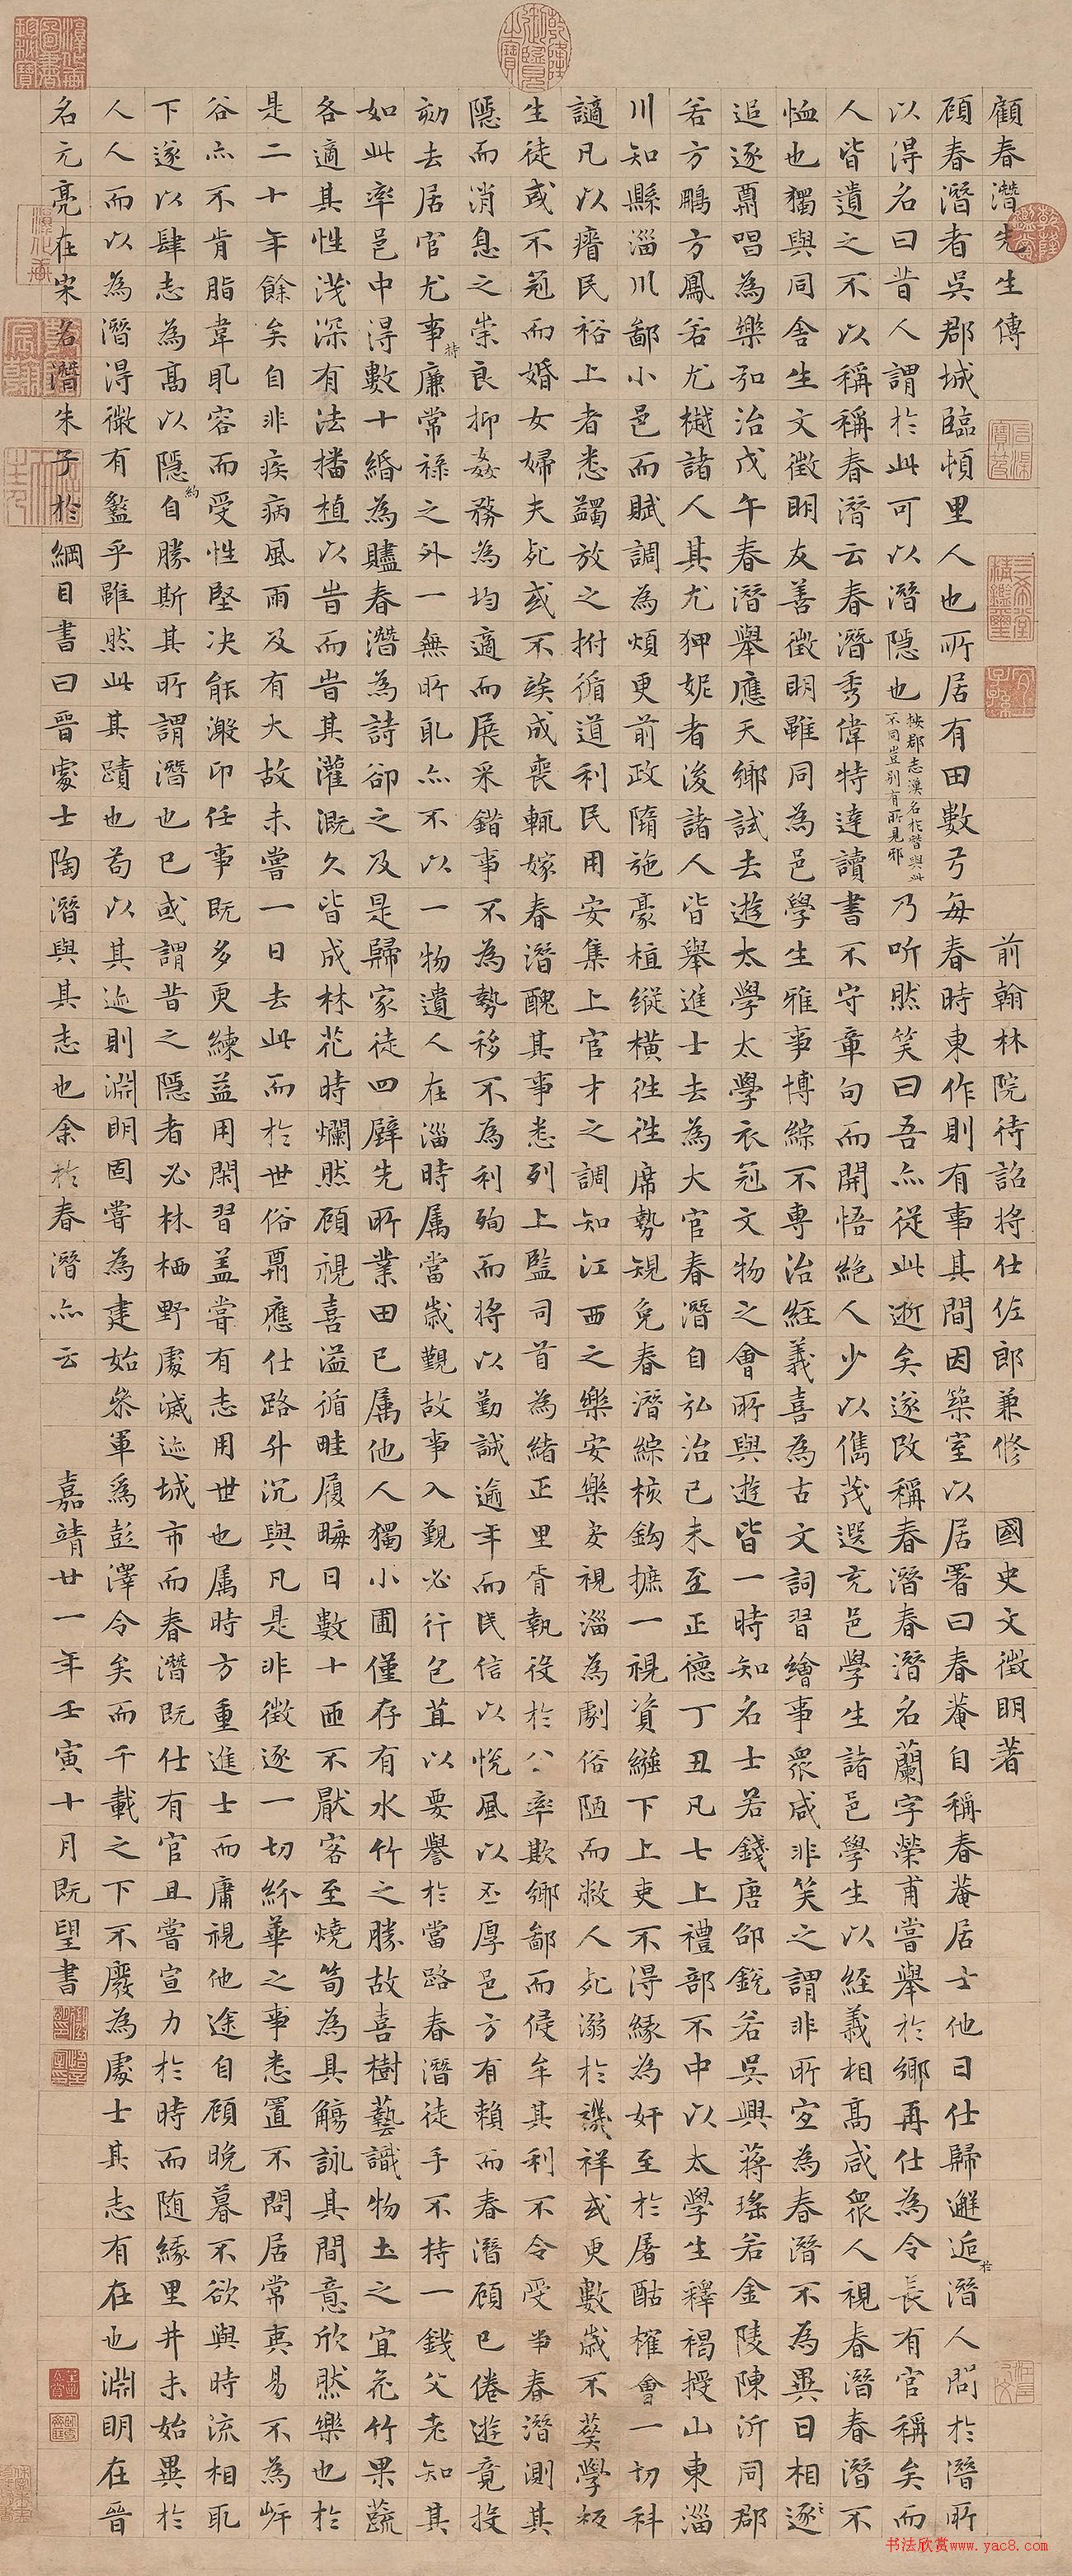 顧春潛先生傳　前翰林院待詔將仕佐郎兼修　國史文徵明著
顧春潛者吳郡城臨頓里人也所居有田數弓每春時東作則有事其間因築室以居署曰春菴自稱春菴居士他日仕歸邂逅於潛人問於潛所
以得名曰昔人謂於此可以潛隱也按郡志漢名於朁與此不同豈別有所見邪乃听然笑曰吾亦從此逝矣遂改稱春潛春潛名蘭字榮甫嘗舉於鄉再仕為令長有官稱矣而
人皆遺之不以稱稱春潛云春潛秀偉特達讀書不守章句而開悟絕人少以儁茂選充邑學生諸邑學生以經義相高咸眾人視春潛春潛不
恤也獨與同舍生文徵明友善徵明雖同為邑學生雅事博綜不專治經義喜為古文詞習繪事眾咸非笑之謂非所宜為春潛不為異日相逐
追逐鬲唱為樂弘治戊午春潛舉應天鄉試去遊太學太學衣冠文物之會所與遊皆一時知名士若錢唐邵銳若吳興蔣瑤若金陵陳沂同郡
若方鵬方鳳若尤樾諸人其尤狎妮者後諸人皆舉進士去為大官春潛自弘治己未至正德丁丑凡七上禮部不中以太學生釋褐授山東淄
川知縣淄川鄙小邑而賦調為煩更前政隋施豪植縱橫往往席勢規免春潛綜核鉤摭一視資繈下上吏不得緣為奸至於屠酤榷會一切科
讁凡以瘠民裕上者悉蠲放之拊循道利民用安集上官才之調知江西之樂安樂安視淄為劇俗陋而敝人死溺於禨祥或更數歲不葬學校
生徒或不冠而婚女婦夫死或不竢成喪輒嫁春潛醜其事悉列上監司首為緒正里胥執役於公率欺鄉鄙而侵牟其利不令受甾春潛測其
隱而消息之崇良抑姦務為均適而展采錯事不為勢移不為利殉而將以勤誠逾年而民信以悅風以丕厚邑方有賴而春潛顧已倦遊竟投
劾去居官尤事持廉常祿之外一無所取亦不以一物遺人在淄時属當歲覲故事入覲必行苞苴以要譽於當路春潛徒手不持一錢父老知其
如此率邑中得數十緡為贐春潛為詩卻之及是歸家徒四壁先所業田已属他人獨小圃僅存有水竹之勝故喜樹藝識物土之宜花竹果蓏
各適其性淺深有法播植以旹而旹其灌溉久皆成林花時爛然顧視喜溢循畦履畮日數十匝不厭客至燒筍為具觴詠其間意欣然樂也於
是二十年餘矣自非疾病風雨及有大故未嘗一日去此而於世俗鬲應仕路升沉與凡是非徵逐一切紛華之事悉置不問居常夷易不為岸
谷亦不肯脂韋取容而受性堅决能澈卬任事既多更練益用閑習盖嘗有志用世也属時方重進士而庸視他途自顧晚暮不欲與時流相取
下遂以肆志為高以隱自約勝斯其所謂潛也已或謂昔之隱者必林栖野處滅迹城市而春潛既仕有官且嘗宣力於時而隨緣里井未始異於
人人而以為潛得微有盭乎雖然此其蹟也茍以其迹則淵明固嘗為建始參軍爲彭澤令矣而千載之下不廢為處士其志有在也淵明在晉
名元亮在宋名潛朱子於綱目書曰晉處士陶潛與其志也余於春潛亦云　嘉靖廿一年壬寅十月既望書
书法欣赏www.yac8.com